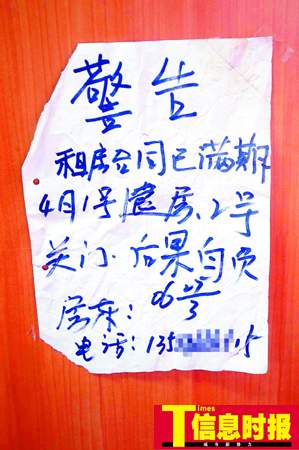 警告
租房合同已满期
4月1号退房.2号
关门.后果自负
房东: 06 27/3
电话: 135 15
Times
信息时报